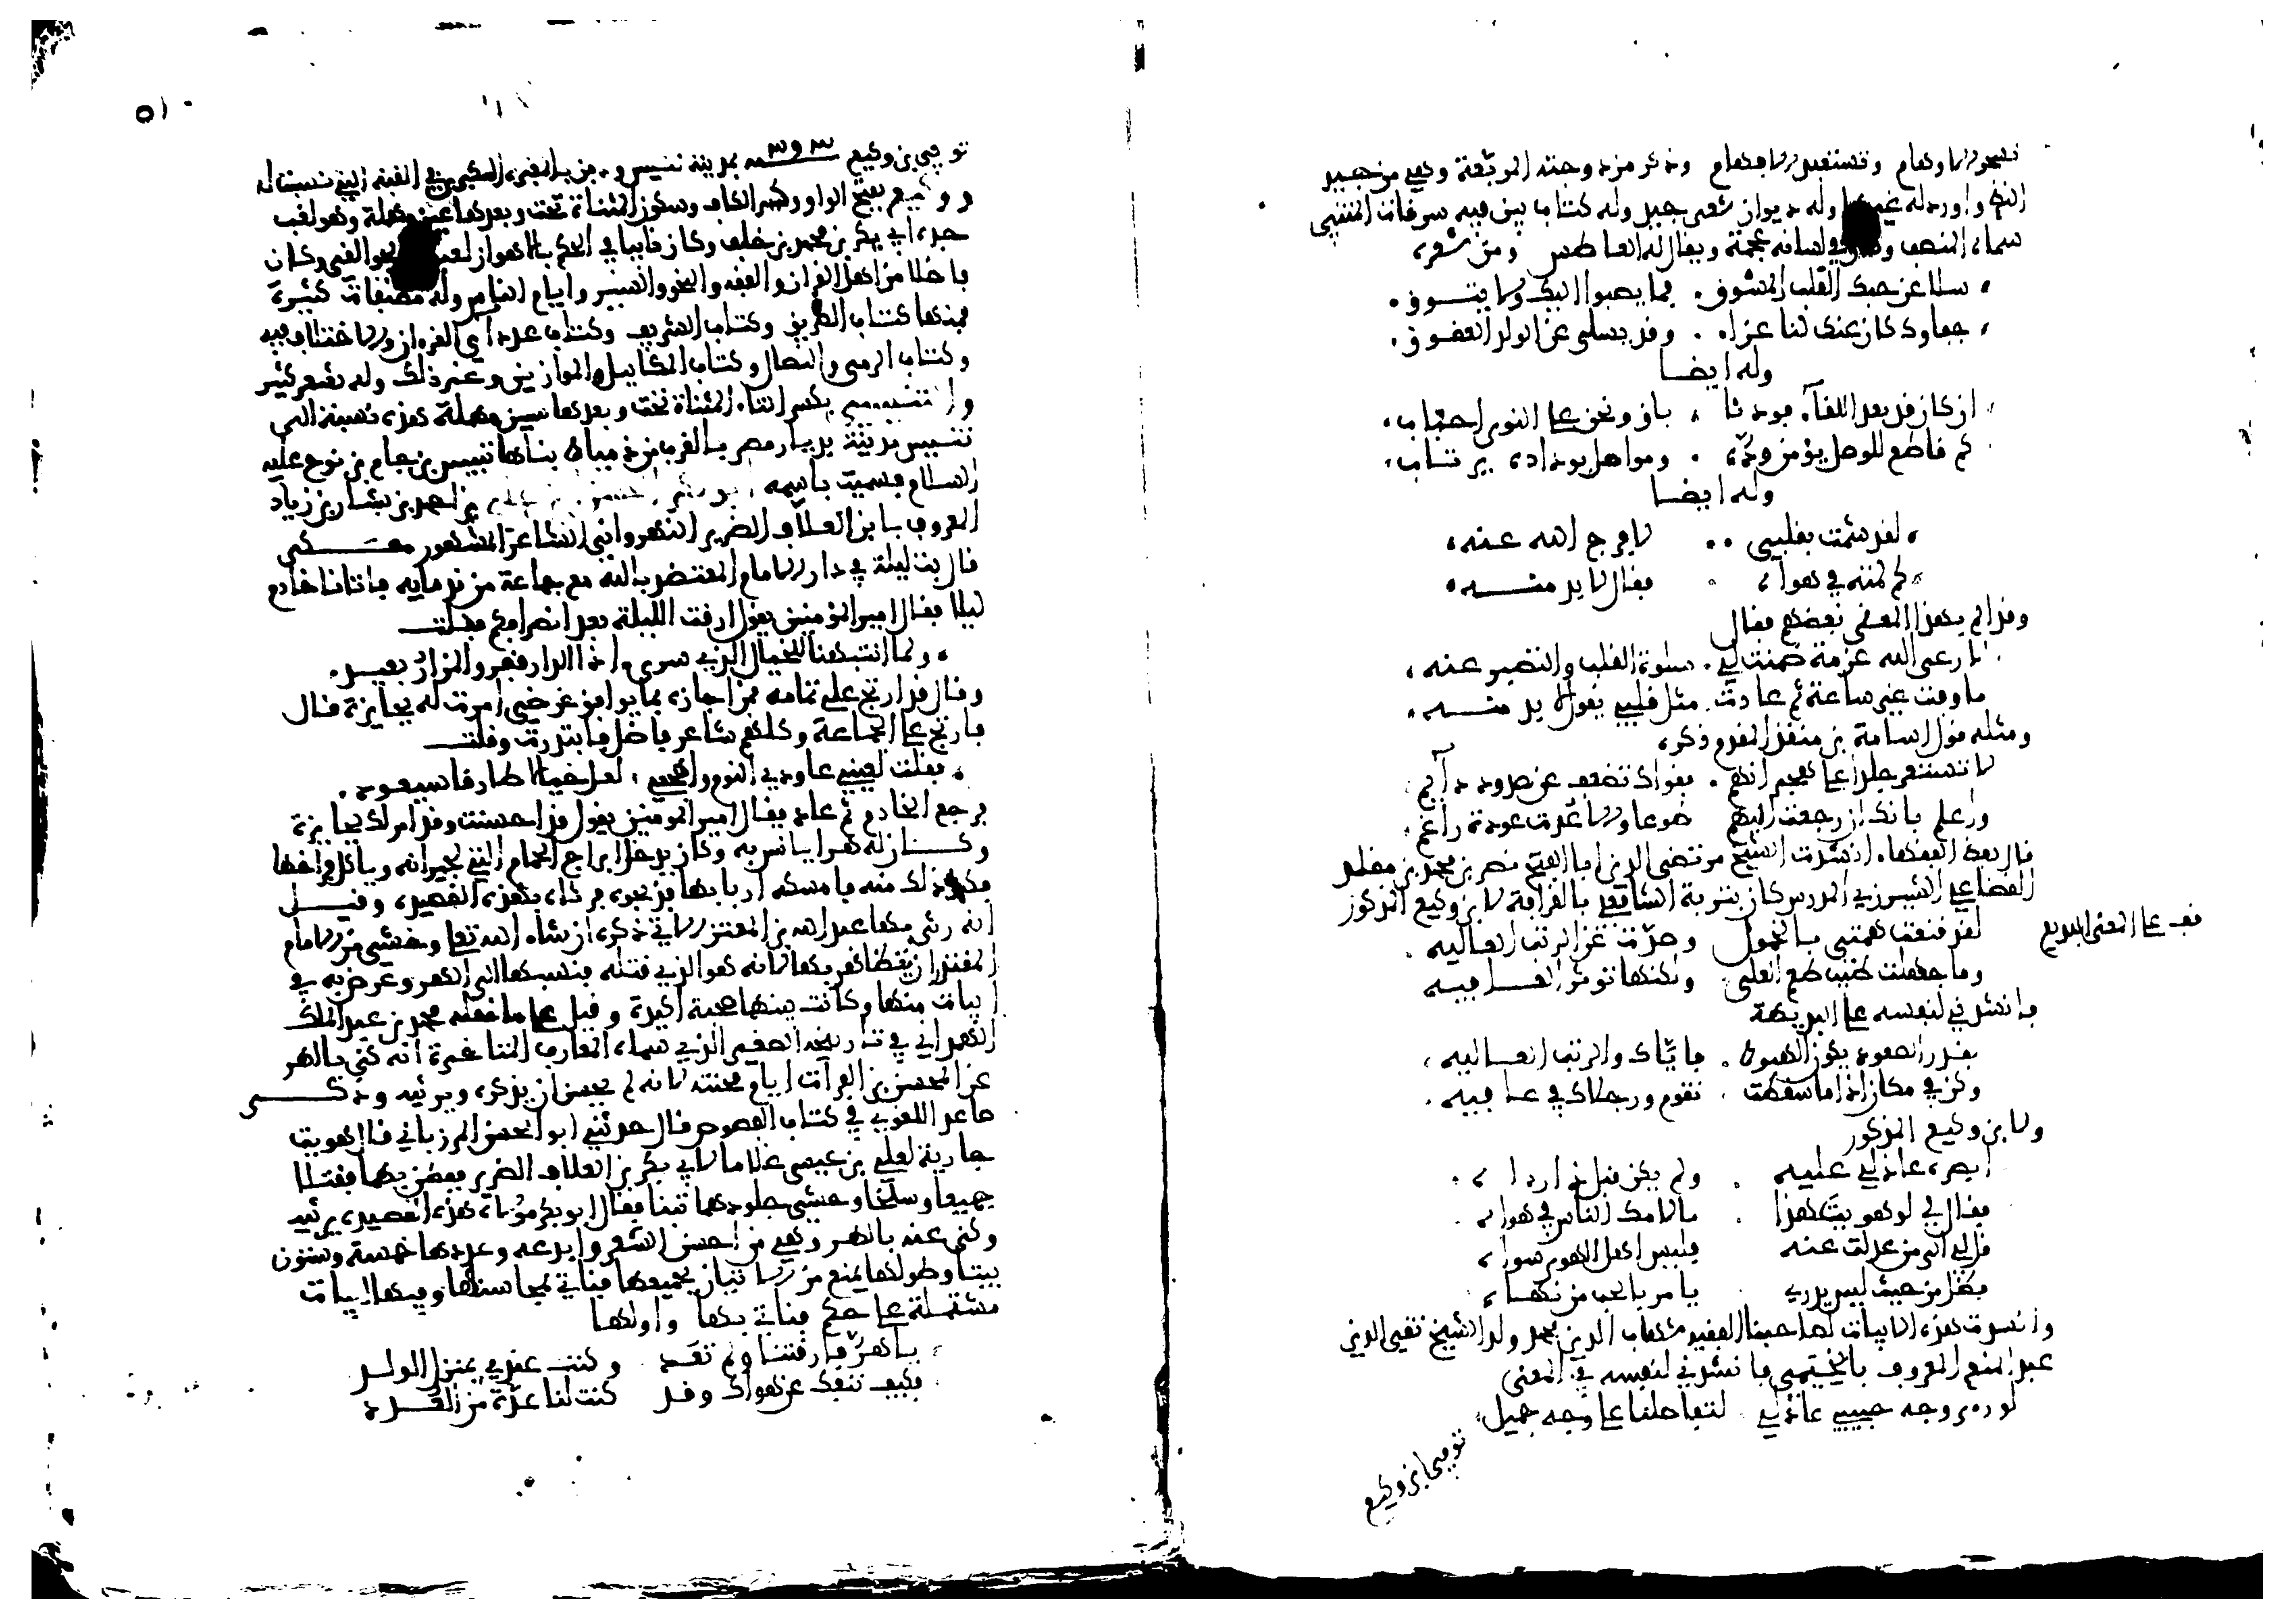 تسحر الاوهام وتستعبد الافهام وذكر مزدوجته المربعة وهي من جيد
النظم واورد له غيرها وله ديوان شعر جيد وله كتاب بين فيه سرقات المتنبي
سماه المنصف وكان في لسانه عجمة ويقال له العاطس ومن شعره
سلا عن حبك القلب المشوق . فما يصبوا اليك ولا يتوق
جفاوك كان عنك لنا عزاء . وقد يسلى عن الولد العقوق
وله ايضا
ان كان قد بعد اللقاء فودنا . باق ونحن على النوى احباب
كم قاطع للوصل يؤمن وده . ومواصل بوداده يرتاب
وله ايضا
لقد شمت بقلبي .. لا فرج الله عنه
كم لمته في هواه . فقال لا بد منه
وقد الم بهذا المعنى بعضهم فقال
لا رعى الله عزمة ضمنت لي . سلوة القلب والتصبر عنه
ما وفت غير ساعة ثم عادت . مثل قلبي يقول لا بد منه
ومثله قول اسامة بن منقذ المقدم ذكره
لا تستعر جلدا على هجرانهم . فقواك تضعف عن صدود دائم
واعلم بانك ان رجعت اليهم طوعا والا عدت عودة راغم
قال بعض الفقهاء انشدت الشيخ مرتضى الدين ابا الفتح نصر بن محمد بن مقلد
القضاعي الشيزري المدرس كان بتربة الشافعي بالقرافة لابن وكيع المذكور
لقد قنعت همتي بالخمول وصدت عن الرتب العاليه
قف على المعنى البديع
وما جهلت طيب طعم العلى ولكنها تؤثر العافيه
فانشدني لنفسه على البديهة
بقدر الصعود يكون الهبوط . فاياك والرتب العاليه
وكن في مكان اذا ما سقطت . تقوم ورجلاك في عافيه
ولابن وكيع المذكور
ابصره عاذلي عليه . ولم يكن قبل ذا راه
فقال لي لو هويت هذا . ما لامك الناس في هواه
قل لي الى من عدلت عنه فليس اهل الهوى سواه
فظل من حيث ليس يدري يامر بالحب من نهاه
وانشدت هذه الابيات لصاحبنا الفقيه شهاب الدين محمد ولد الشيخ تقي الدين
عبد المنعم المعروف بالخيمي فانشدني لنفسه في المعنى
لو راى وجه حبيبي عاذلي . لتفاصلنا على وجه جميل
توفي ابن وكيع
توفي بن وكيع سنة ٣٩٣ بمدينة تنيس ودفن بالمقبرة الكبرى في القبة التي بنيت له
ووكيع بفتح الواو وكسر الكاف وسكون المثناة تحت وبعدها عين مهملة وهو لقب
جده ابي بكر بن محمد بن خلف وكان نايبا في الحكم بالاهواز لعبدان الجواليقي وكان
فاضلا من اهل القران والفقه والنحو والسير وايام الناس وله مصنفات كثيرة
فمنها كتاب الطريق وكتاب الشريف وكتاب عدد آي القرءان والاختلاف فيه
وكتاب الرمي والنضال وكتاب المكاييل والموازين وغير ذلك وله شعر كثير
والتنيسي بكسر التاء المثناة تحت وبعدها سين مهملة هذه نسبته الى
تنيس مدينة بديار مصر بالقرب من دمياط بناها تنيس بن حام بن نوح عليه
السلام فسميت باسمه ابو بكر الحسن بن علي بن احمد بن بشار بن زياد
المعروف بابن العلاف الضرير النهرواني الشاعر المشهور
قال بت ليلة في دار الامام المعتضد بالله مع جماعة من ندمايه فاتانا خادم
ليلا فقال امير المؤمنين يقول ارقت الليلة بعد انصرافكم فقلت
ولما انتبهنا للخيال الذي سرى . اذا الدار قفر والمزار بعيد
وقال قد ارتج علي تمامه فمن اجازه بما يوافق غرضي امرت له بجايزة قال
فارتج على الجماعة وكلهم شاعر فاضل فابتدرت وقلت
فقلت لعيني عاودي النوم واهجعي . لعل خيالا طارقا سيعود
فرجع الخادم ثم عاد فقال امير المومنين يقول قد احسنت وقد امر لك بجايزة
وكان له هر يانس به وكان يدخل ابراج الحمام التي لجيرانه وياكل فراخها
فكثر ذلك منه فامسكه اربابها فذبحوه فرثاه بهذه القصيدة وقيل
انه رثى بها عبد الله بن المعتز الاتي ذكره ان شاء الله تعالى وخشي من الامام
المقتدر ان يتظاهر بها لانه هو الذي قتله فنسبها الى الهر وعرض به في
ابيات منها وكانت بينهما صحبة اكيدة وقيل على ما ذكره محمد بن عبد الملك
الهمداني في تاريخه الصغير الذي سماه المعارف المتاخرة انه كنى بالهر
عن المحسن بن الفرات ايام محنته لانه لم يجسر ان يذكره ويرثيه وذكر
صاعد اللغوي في كتاب الفصوص قال حدثني ابو الحسن المرزباني قال هويت
جارية لعلي بن عيسى غلاما لابي بكر بن العلاف الضرير ففطن بهما فقتلا
جميعا وسلخا وحشي جلودهما تبنا فقال ابو بكر مولاه هذه القصيدة يرثيه
وكنى عنه بالهر وهي من احسن الشعر وابدعه وعددها خمسة وستون
بيتا وطولها يمنع من الاتيان بجميعها فناتي بمحاسنها وفيها ابيات
مشتملة على حكم فناتي بها واولها
يا هر فارقتنا ولم تعد وكنت عندي بمنزل الولد
فكيف ننفك عن هواك وقد كنت لنا عدة من العدد